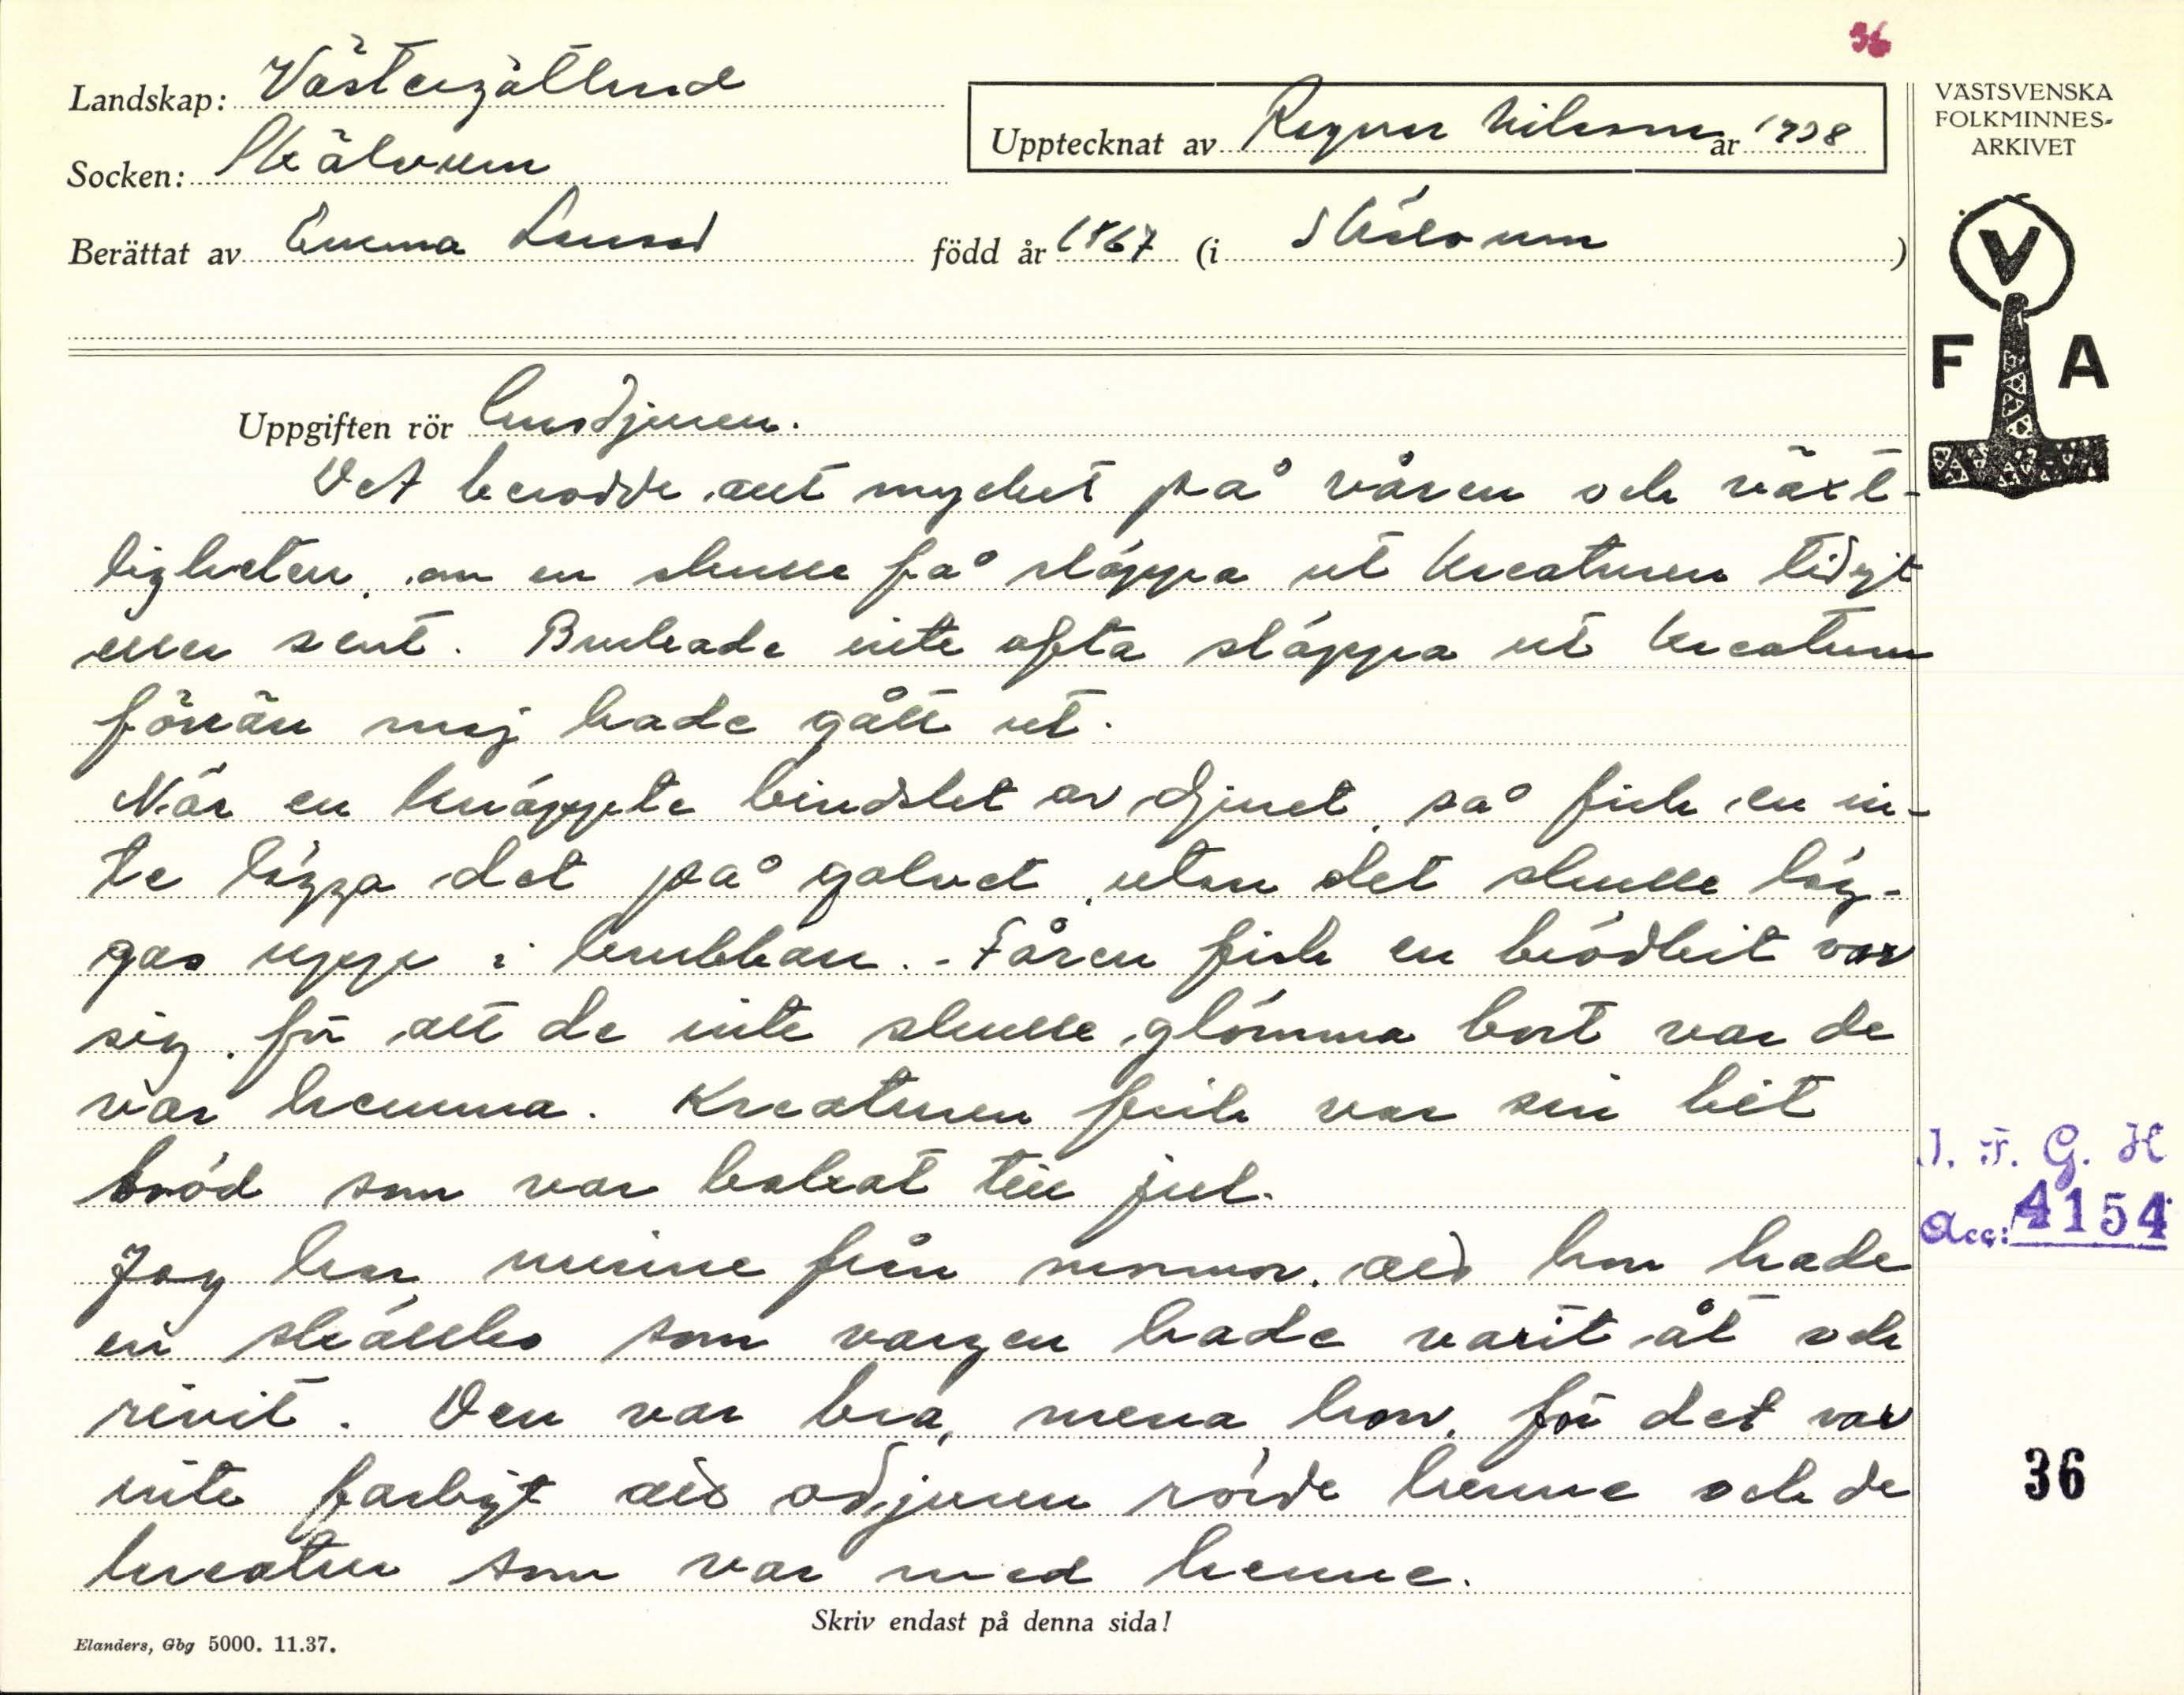 36
Landskap: Västergötland
Socken: Skälvum
Upptecknat av Ragnar Nilsson år 1938
Berättat av Emma Lund född år 1867 (i Skälvum)
VÄSTSVENSKA
FOLKMINNES-
ARKIVET
V
F A
Uppgiften rör husdjuren.
Det berodde allt mycket på våren och växt-
ligheten, om en skulle få släppa ut kreaturen tidigt
eller sent. Brukade inte ofta släppa ut kreaturen
förrän maj hade gått ut.
När en knäppte bindslet av djuret, så fick en in-
te lägga det på golvet, utan det skulle läg-
gas uppe i krubban. - Fåren fick en brödbit var
sig, för att de inte skulle glömma bort var de
var hemma. Kreaturen fick var sin bit
bröd som var bakat till jul.
Jag har minne från mormor, att hon hade
en skällko som vargen hade varit åt och
rivit. Den var bra, mena hon, för det var
inte farligt att odjuren rörde henne och de
kreatur som var med henne.
I. F. G. H
Acc: 4154
36
Skriv endast på denna sida!
Elanders, Gbg 5000. 11.37.